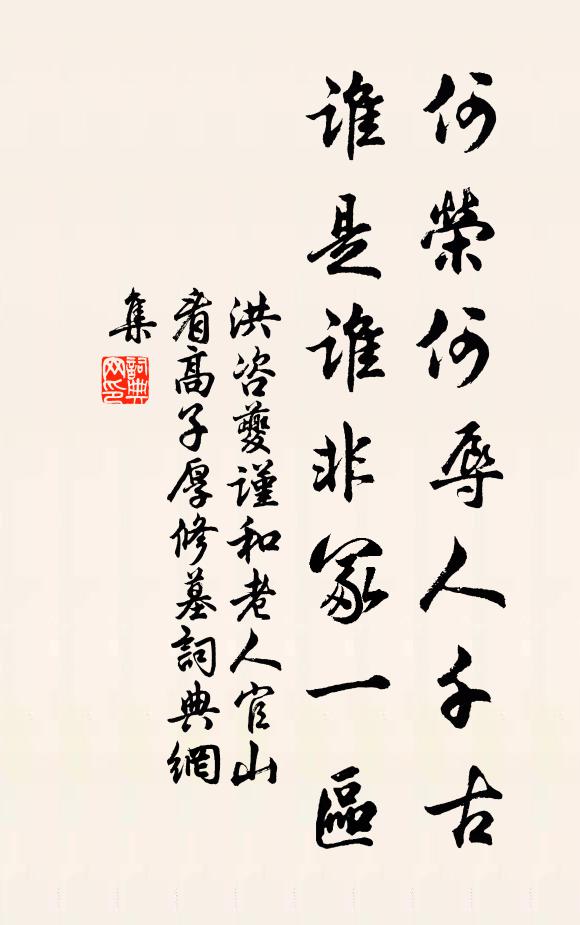 何榮何辱人千古
誰是誰非冢一區
洪咨夔謹和老人官山
看高子厚修墓詞典網
集
詞典
网印